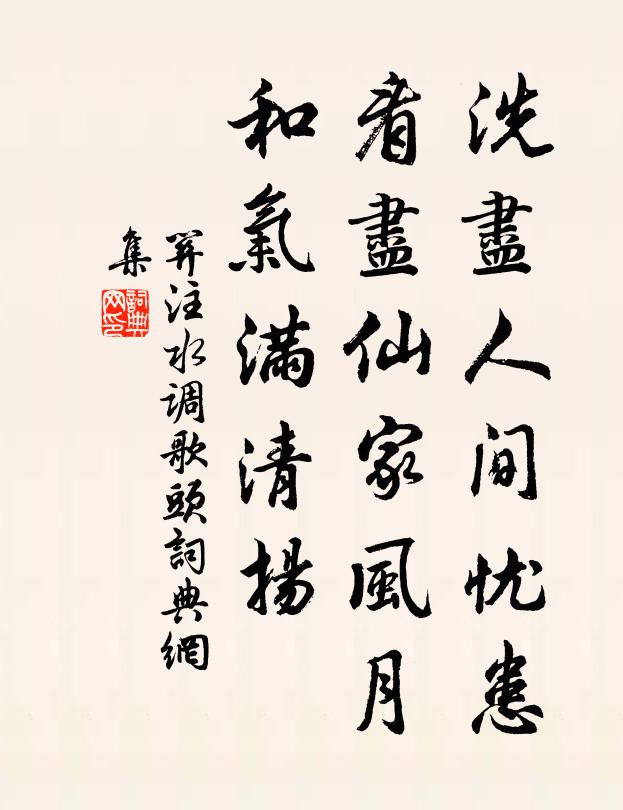 洗盡人间忧患
看盡仙家風月
和氣满清揚
羿注水调歌頭詞典網
集
詞典网印